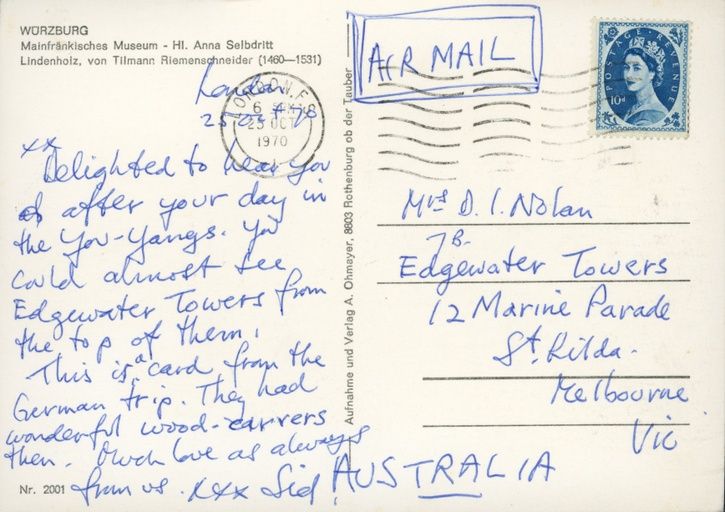 WÜRZBURG
Mainfränkisches Museum - Hl. Anna Selbdritt
Lindenholz, von Tilmann Riemenschneider (1460—1531)
London
xx
Delighted to hear you
after your day in
the You-Yangs. You
could almost see
Edgewater Towers from
the top of them.
This is a card from the
German trip. They had
wonderful wood-carvers
then. Much love as always
from us. xxx Sid
Nr. 2001
Aufnahme und Verlag A. Ohmayer, 8803 Rothenburg ob der Tauber
AIR MAIL
LONDON. F.S
6
23 OCT
1970
POSTAGE REVENUE
10d
Mrs D. I. Nolan
7B.
Edgewater Towers
12 Marine Parade
St. Kilda.
Melbourne
Vic
AUSTRALIA